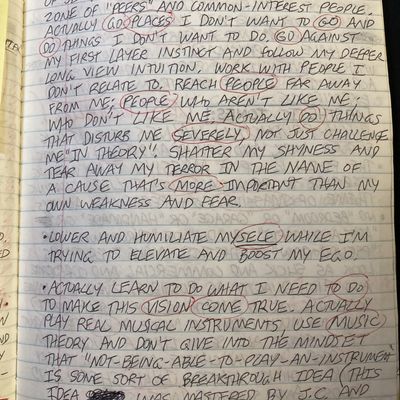 ZONE OF "PEERS" AND COMMON-INTEREST PEOPLE.
ACTUALLY GO PLACES I DON'T WANT TO GO AND
DO THINGS I DON'T WANT TO DO. GO AGAINST
MY FIRST LAYER INSTINCT AND FOLLOW MY DEEPER
LONG VIEW INTUITION. WORK WITH PEOPLE I
DON'T RELATE TO. REACH PEOPLE FAR AWAY
FROM ME; PEOPLE WHO AREN'T LIKE ME;
WHO DON'T LIKE ME. ACTUALLY DO THINGS
THAT DISTURB ME SEVERELY, NOT JUST CHALLENGE
ME "IN THEORY". SHATTER MY SHYNESS AND
TEAR AWAY MY TERROR IN THE NAME OF
A CAUSE THAT'S MORE IMPORTANT THAN MY
OWN WEAKNESS AND FEAR.
• LOWER AND HUMILIATE MY SELF WHILE I'M
TRYING TO ELEVATE AND BOOST MY EGO.
• ACTUALLY LEARN TO DO WHAT I NEED TO DO
TO MAKE THIS VISION COME TRUE. ACTUALLY
PLAY REAL MUSICAL INSTRUMENTS, USE MUSIC
THEORY AND DON'T GIVE INTO THE MINDSET
THAT "NOT-BEING-ABLE-TO-PLAY-AN-INSTRUMENT"
IS SOME SORT OF BREAKTHROUGH IDEA (THIS
IDEA WAS MASTERED BY J.C. AND